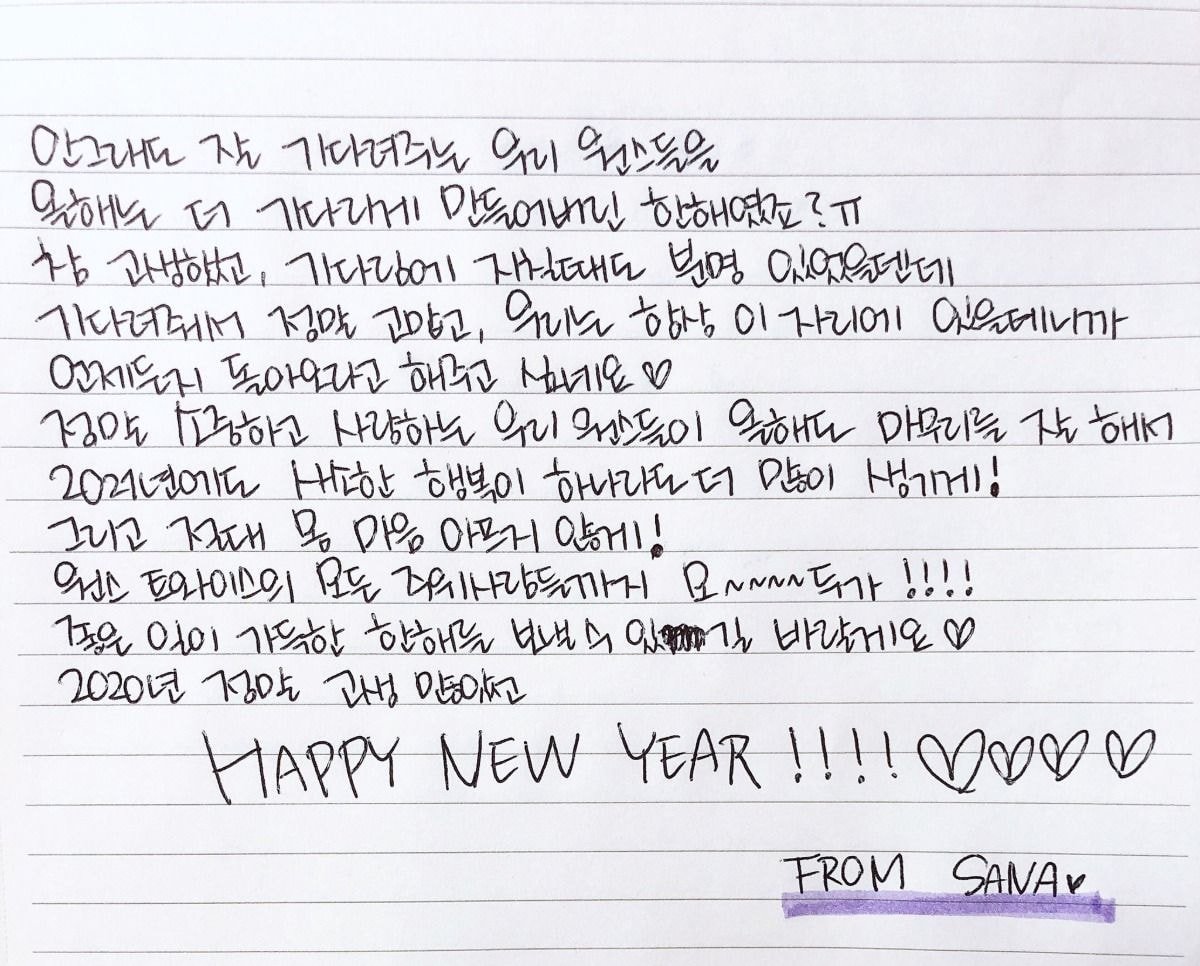 안그래도 잘 기다려주는 우리 원스들을
올해는 더 기다리게 만들어버린 한해였죠?ㅠ
참 고생했고, 기다림에 지칠때도 분명 있었을텐데
기다려줘서 정말 고맙고, 우리는 항상 이 자리에 있을테니까
언제든지 돌아오라고 해주고 싶네요♡
정말 소중하고 사랑하는 우리 원스들이 올해도 마무리를 잘 해서
2021년에도 소소한 행복이 하나라도 더 많이 생기게!
그리고 절대 몸 마음 아프지 않게!
원스 트와이스의 모든 주위사람들까지 모~~~~두가 !!!!
좋은 일이 가득한 한해를 보낼 수 있길 바랄게요♡
2020년 정말 고생 많았고
HAPPY NEW YEAR !!!! ♡♡♡♡
FROM SANA♥